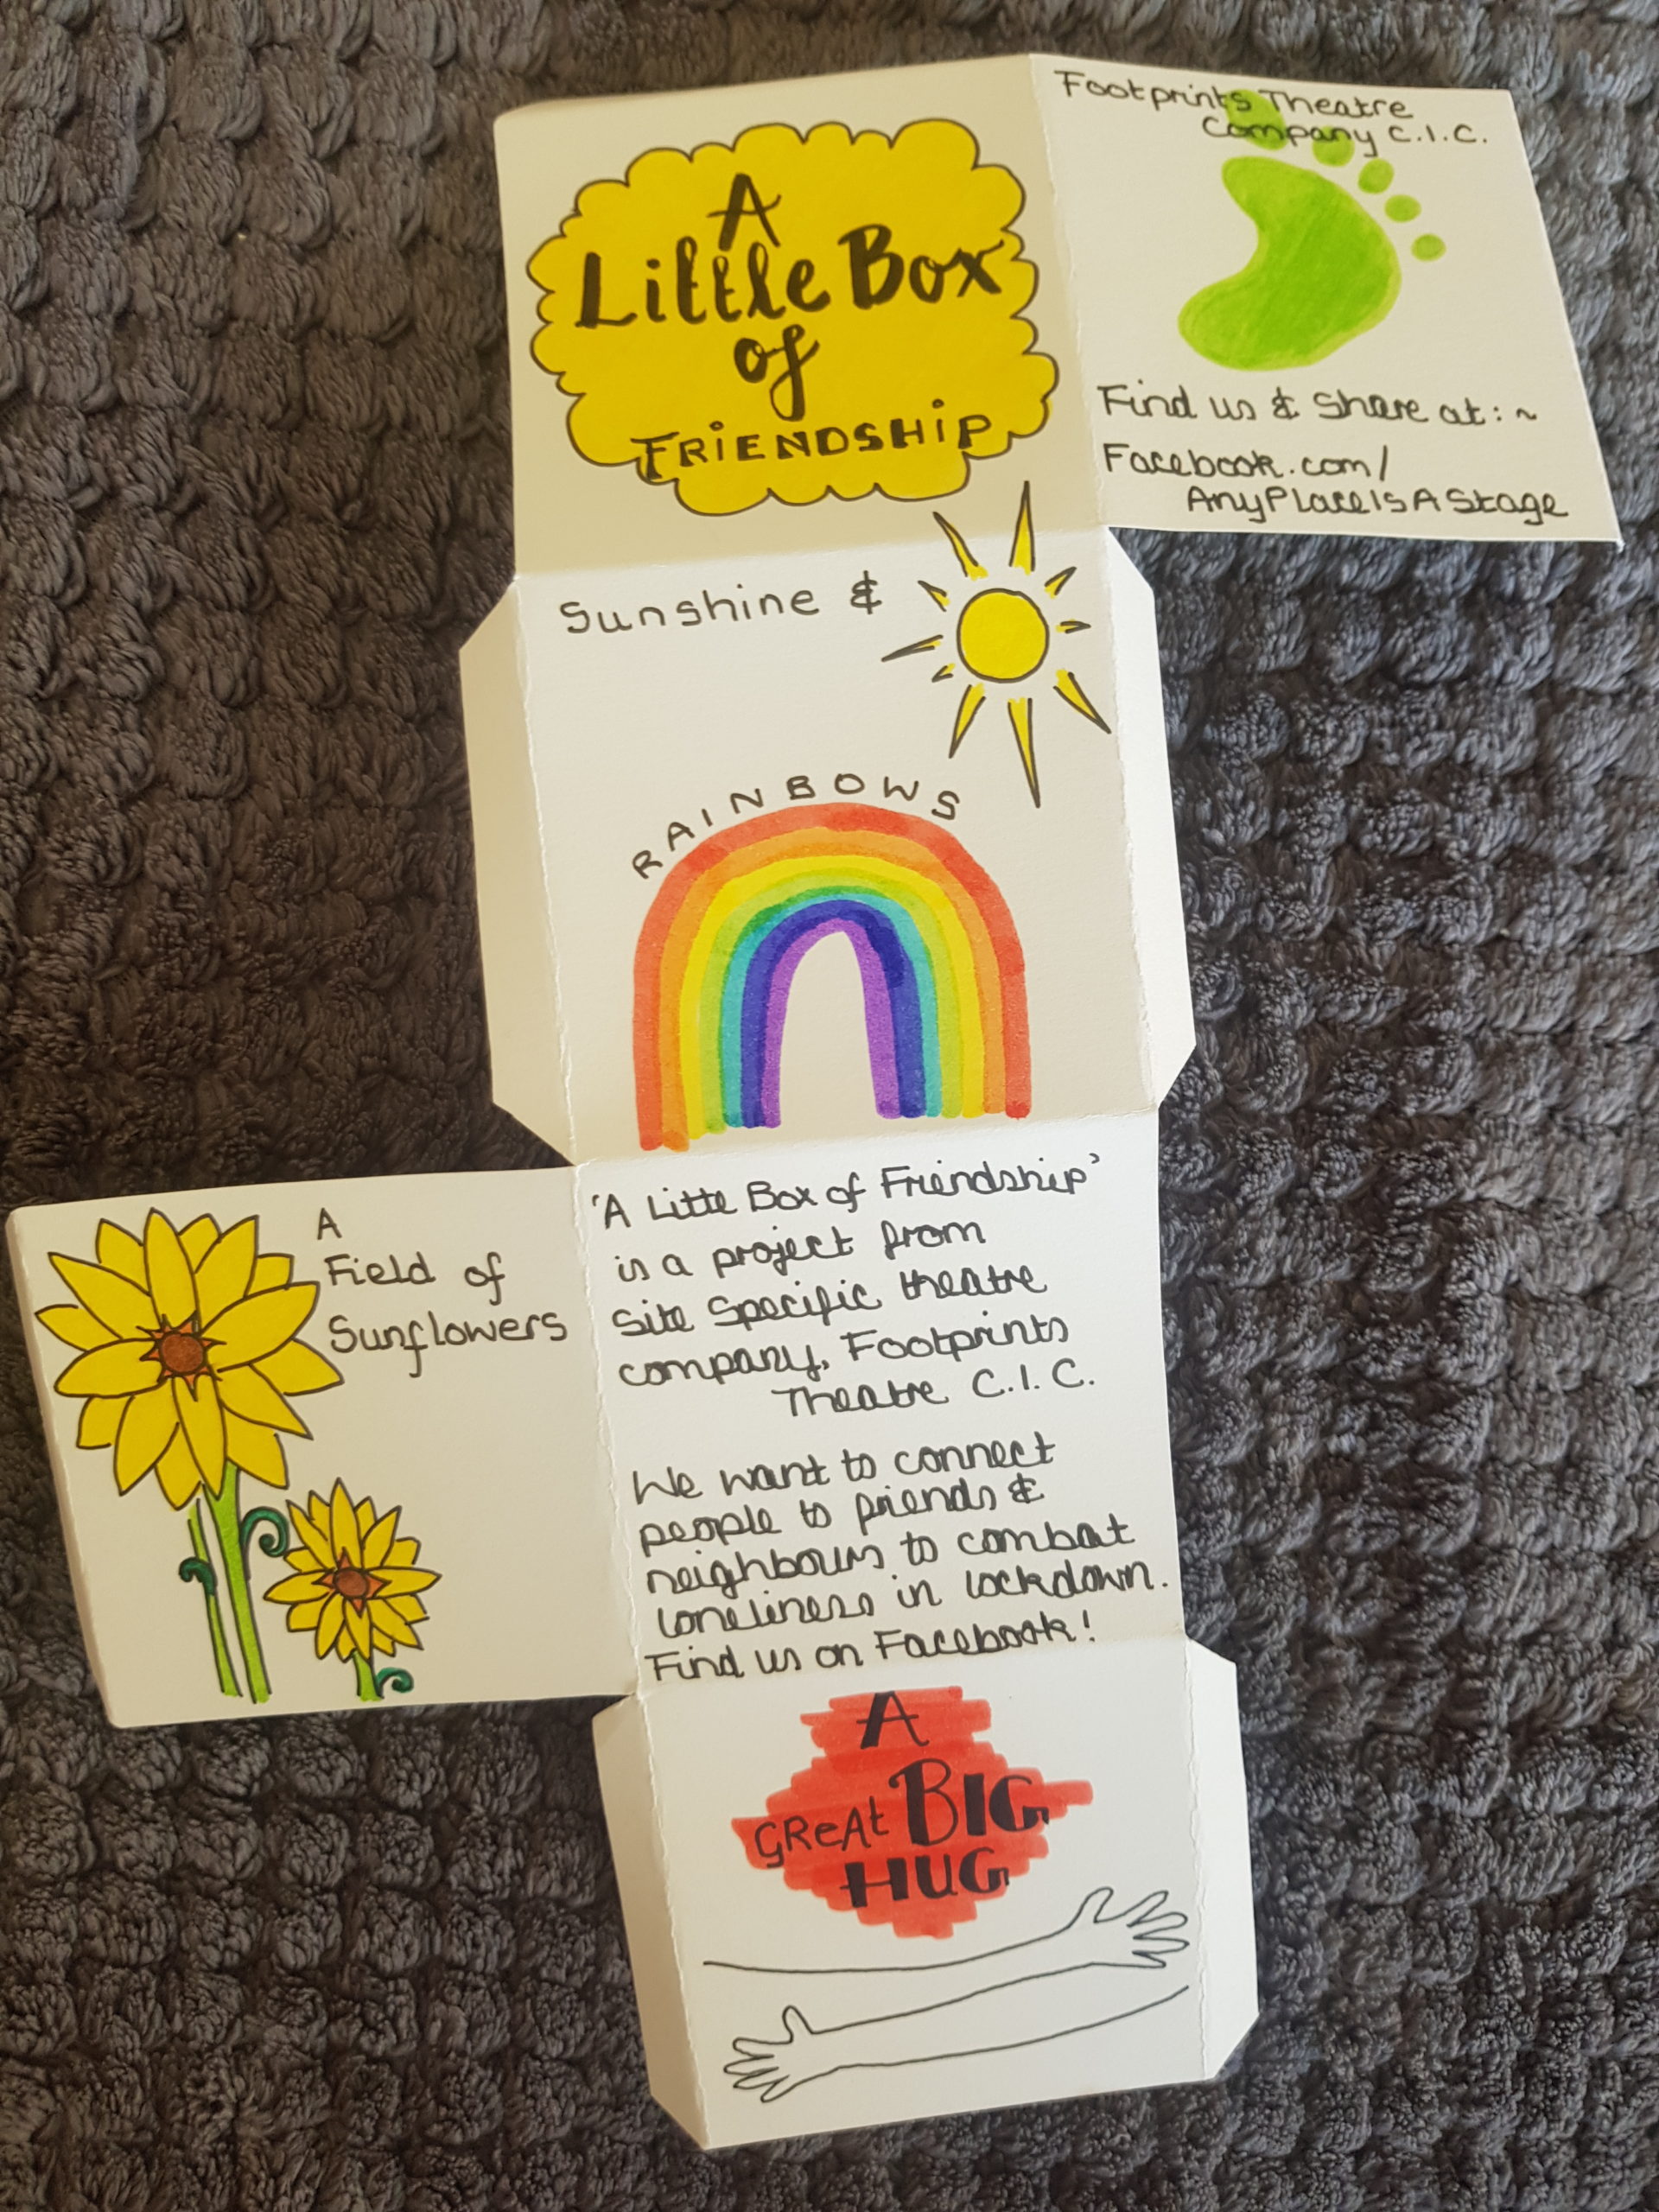 A
Little Box
of
FRIENDSHIP
Footprints Theatre
Company C.I.C.
Find us & share at: ~
Facebook.com/
AnyPlaceIsAStage
Sunshine &
RAINBOWS
A
Field of
Sunflowers
'A Little Box of Friendship'
is a project from
site specific theatre
company, Footprints
Theatre C.I.C.
We want to connect
people to friends &
neighbours to combat
loneliness in lockdown.
Find us on Facebook!
A
GReAt BIG
HUG